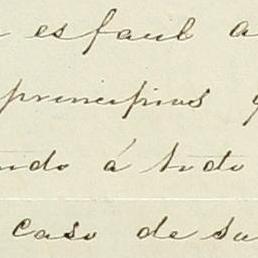 es faul a
principios q
ndo á todo
caso de su